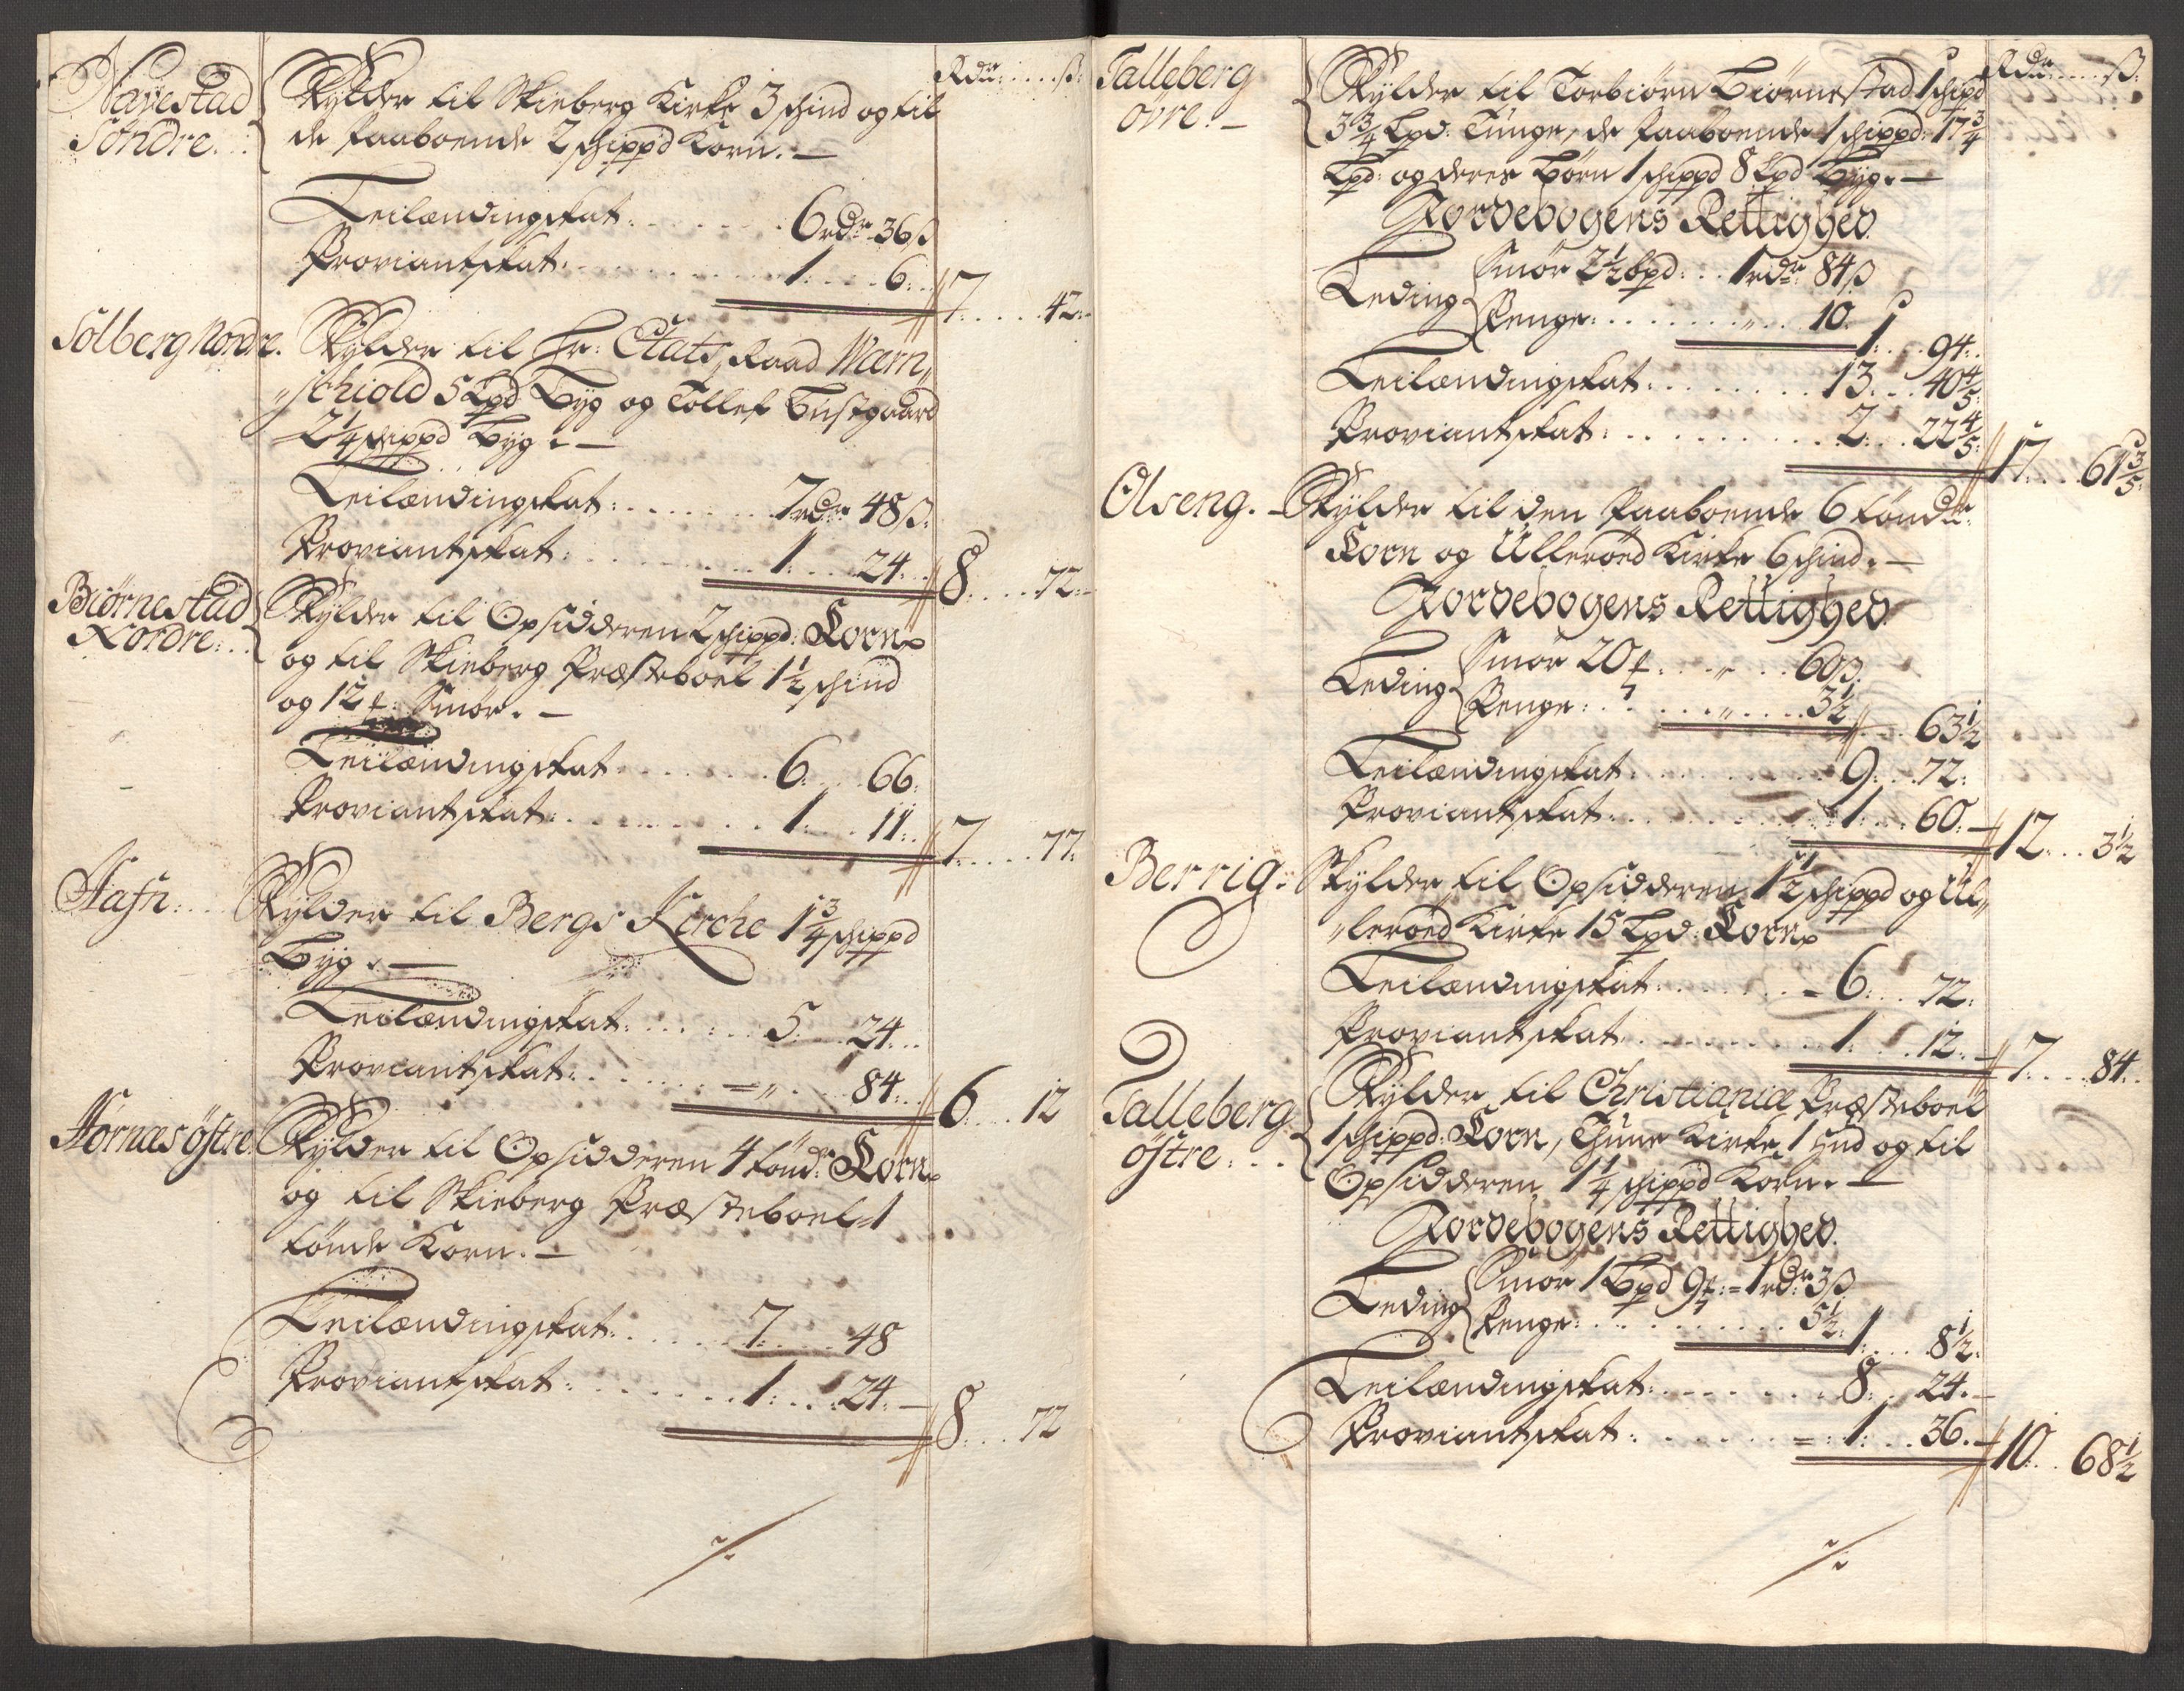 Rdr: ß:
Navestad Söndre. Skylder til Skieberg Kirke 3 skind og til
de Paaboende 2 schippd Korn. —
Leilændingskat: 6 rdr 36 ß
Proviantskat: 1 6: 7 42:
Solberg Nordre. Skylder til Hr: Etats Raad Wærn„
„schiold 5 Lpd Byg og Tollef Bustgaard
2 1/4 schippd Byg. —
Leilændingskat: 7 rdr 48 ß:
Proviantskat: 1 24: 8 72:
Biørnestad Nordre: Skylder til Opsidderen 2 schippd: Korn
og til Skieberg Præsteboel 1 1/2 skind
og 12 ℔: Smør. —
Leilændingskat 6 66:
Proviantskat: 1 11: 7 77:
Hafn: Skylder til Bergs Kirche 1 3/4 schippd
Byg. —
Leilændingskat: 5 24:
Proviantskat: „ 84: 6 12
Hornæs östre Skylder til Opsidderen 4 tönd: Korn
og til Skieberg Præsteboel 1
tönde Korn. —
Leilændingskat: 7 48
Proviantskat: 1 24 — 8 72
Rdr: ß:
Talleberg övre. — Skylder til Torbiørn Biørnestad 1 schipd
3 3/4 Lpd: Tunge, de Paaboende 1 schippd: 17 3/4
Lpd: og deres Børn 1 schippd 8 Lpd Byg. —
Jordebogens Rettighed
Leding Smör 2 1/2 bpd: 1 rdr 84 ß
Penge: „ 10. 1 94:
Leilændingskat: 13 40 4/5
Proviantskat: 2 22 4/5: 17 61 3/5:
Olseng. Skylder til den Paaboende 6 tönder
Korn og Ullerøed Kirke 6 skind. —
Jordebogens Rettighed
Leding Smör 20 ℔: „ 60 ß:
Penge: „ 3 1/2 „ 63 1/2
Leilændingskat: 9 72:
Proviantskat: 1 60: — 12 3 1/2
Berrig: Skylder til Opsidderen 1 1/2 schippd og Ul„
„leröed Kirke 15 Lpd: Korn
Leilændingskat: 6 72:
Proviantskat 1 12: — 7 84
Talleberg östre: Skylder til Christianiæ Præsteboel
1 schippd: Korn, Thune Kirke 1 Hud og til
Opsidderen 1 1/4 schippd Korn. —
Jordebogens Rettighed
Leding Smör 1 Bpd 9 ℔: 1 rdr: 3 ß
Penge: 5 1/2: 1 8 1/2:
Leilændingskat: 8 24. —
Proviantskat: 1 36. — 10 68 1/2